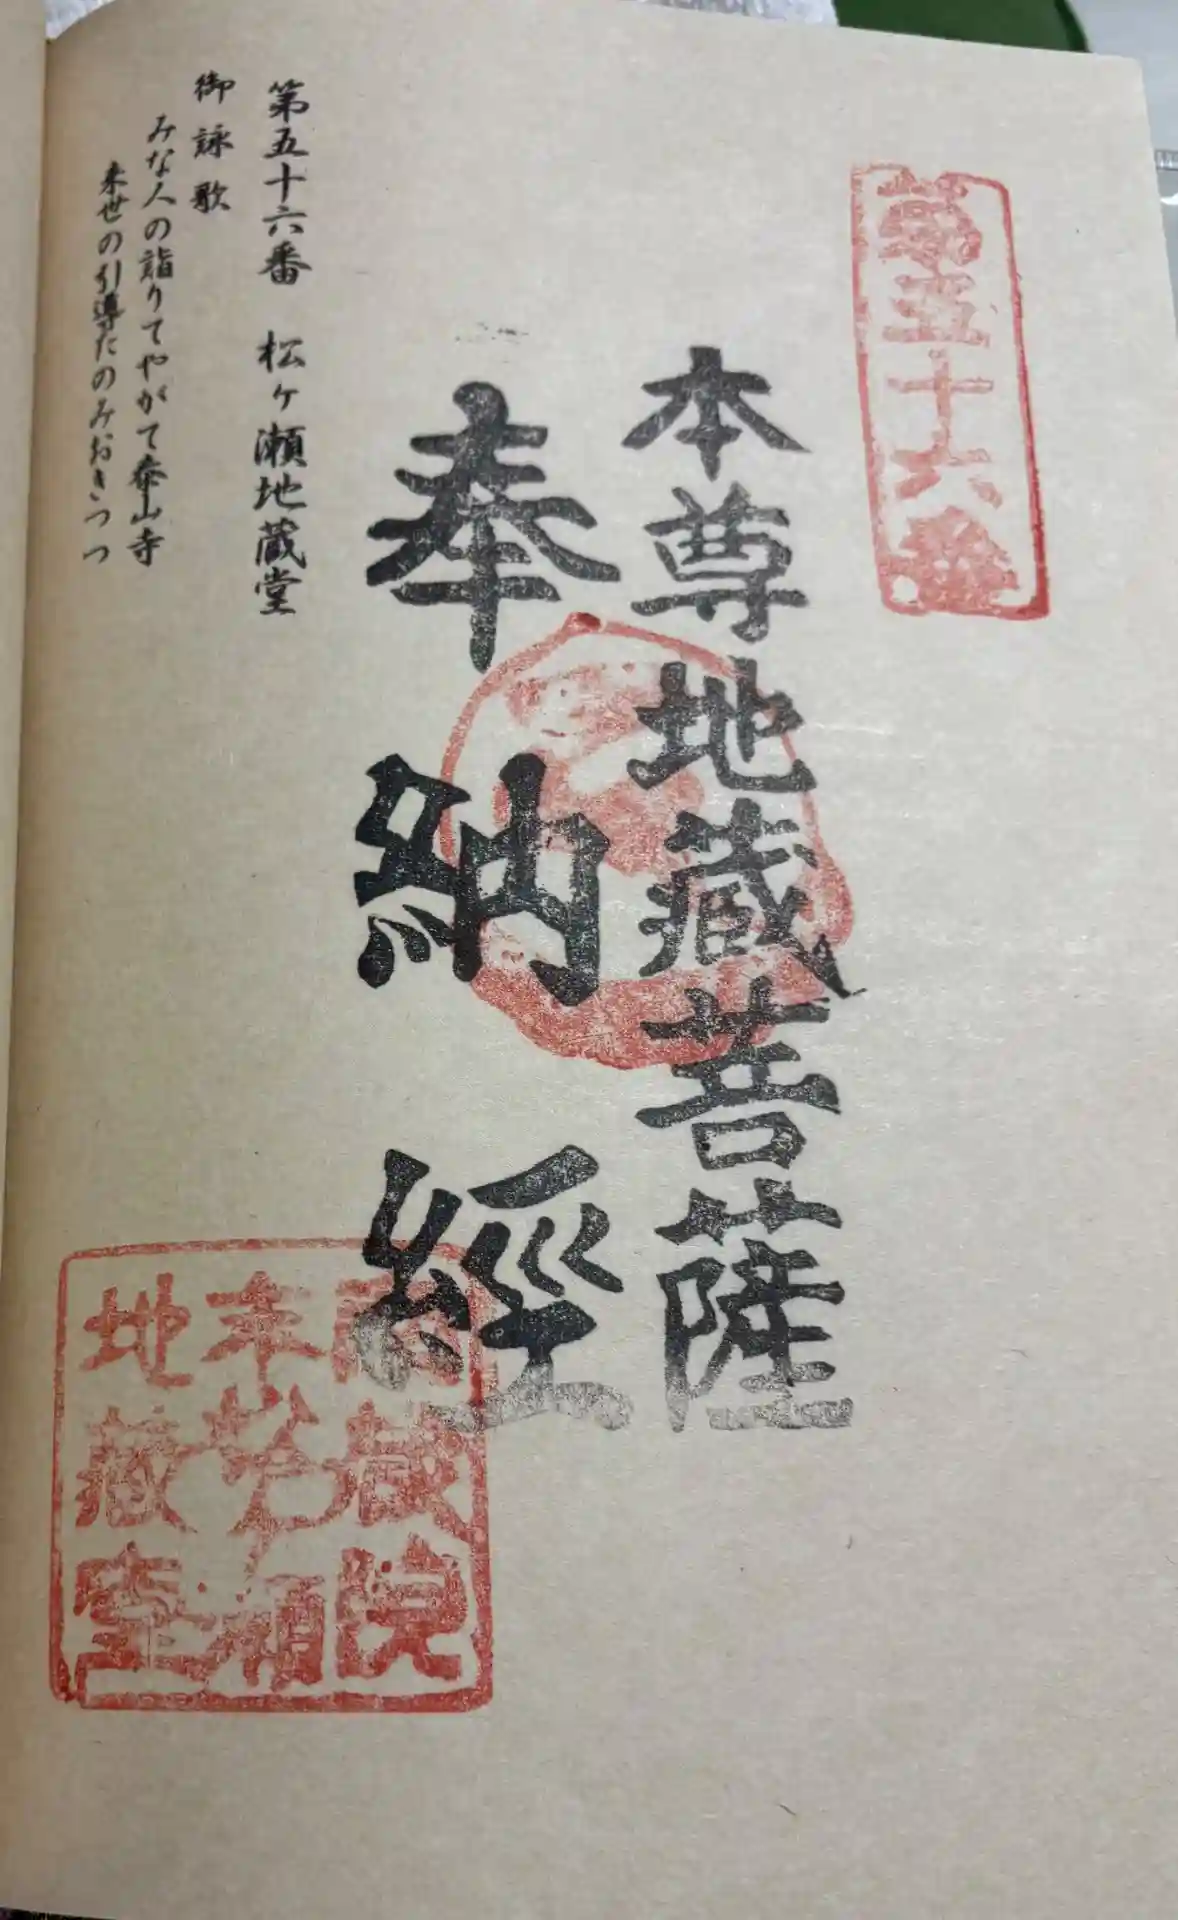 第五十六番
本尊地蔵菩薩
奉納經
第五十六番 松ヶ瀬地蔵堂
御詠歌
みな人の詣りてやがて泰山寺
来世の引導たのみおきつつ
蔵院
奉松ヶ瀬
地蔵堂